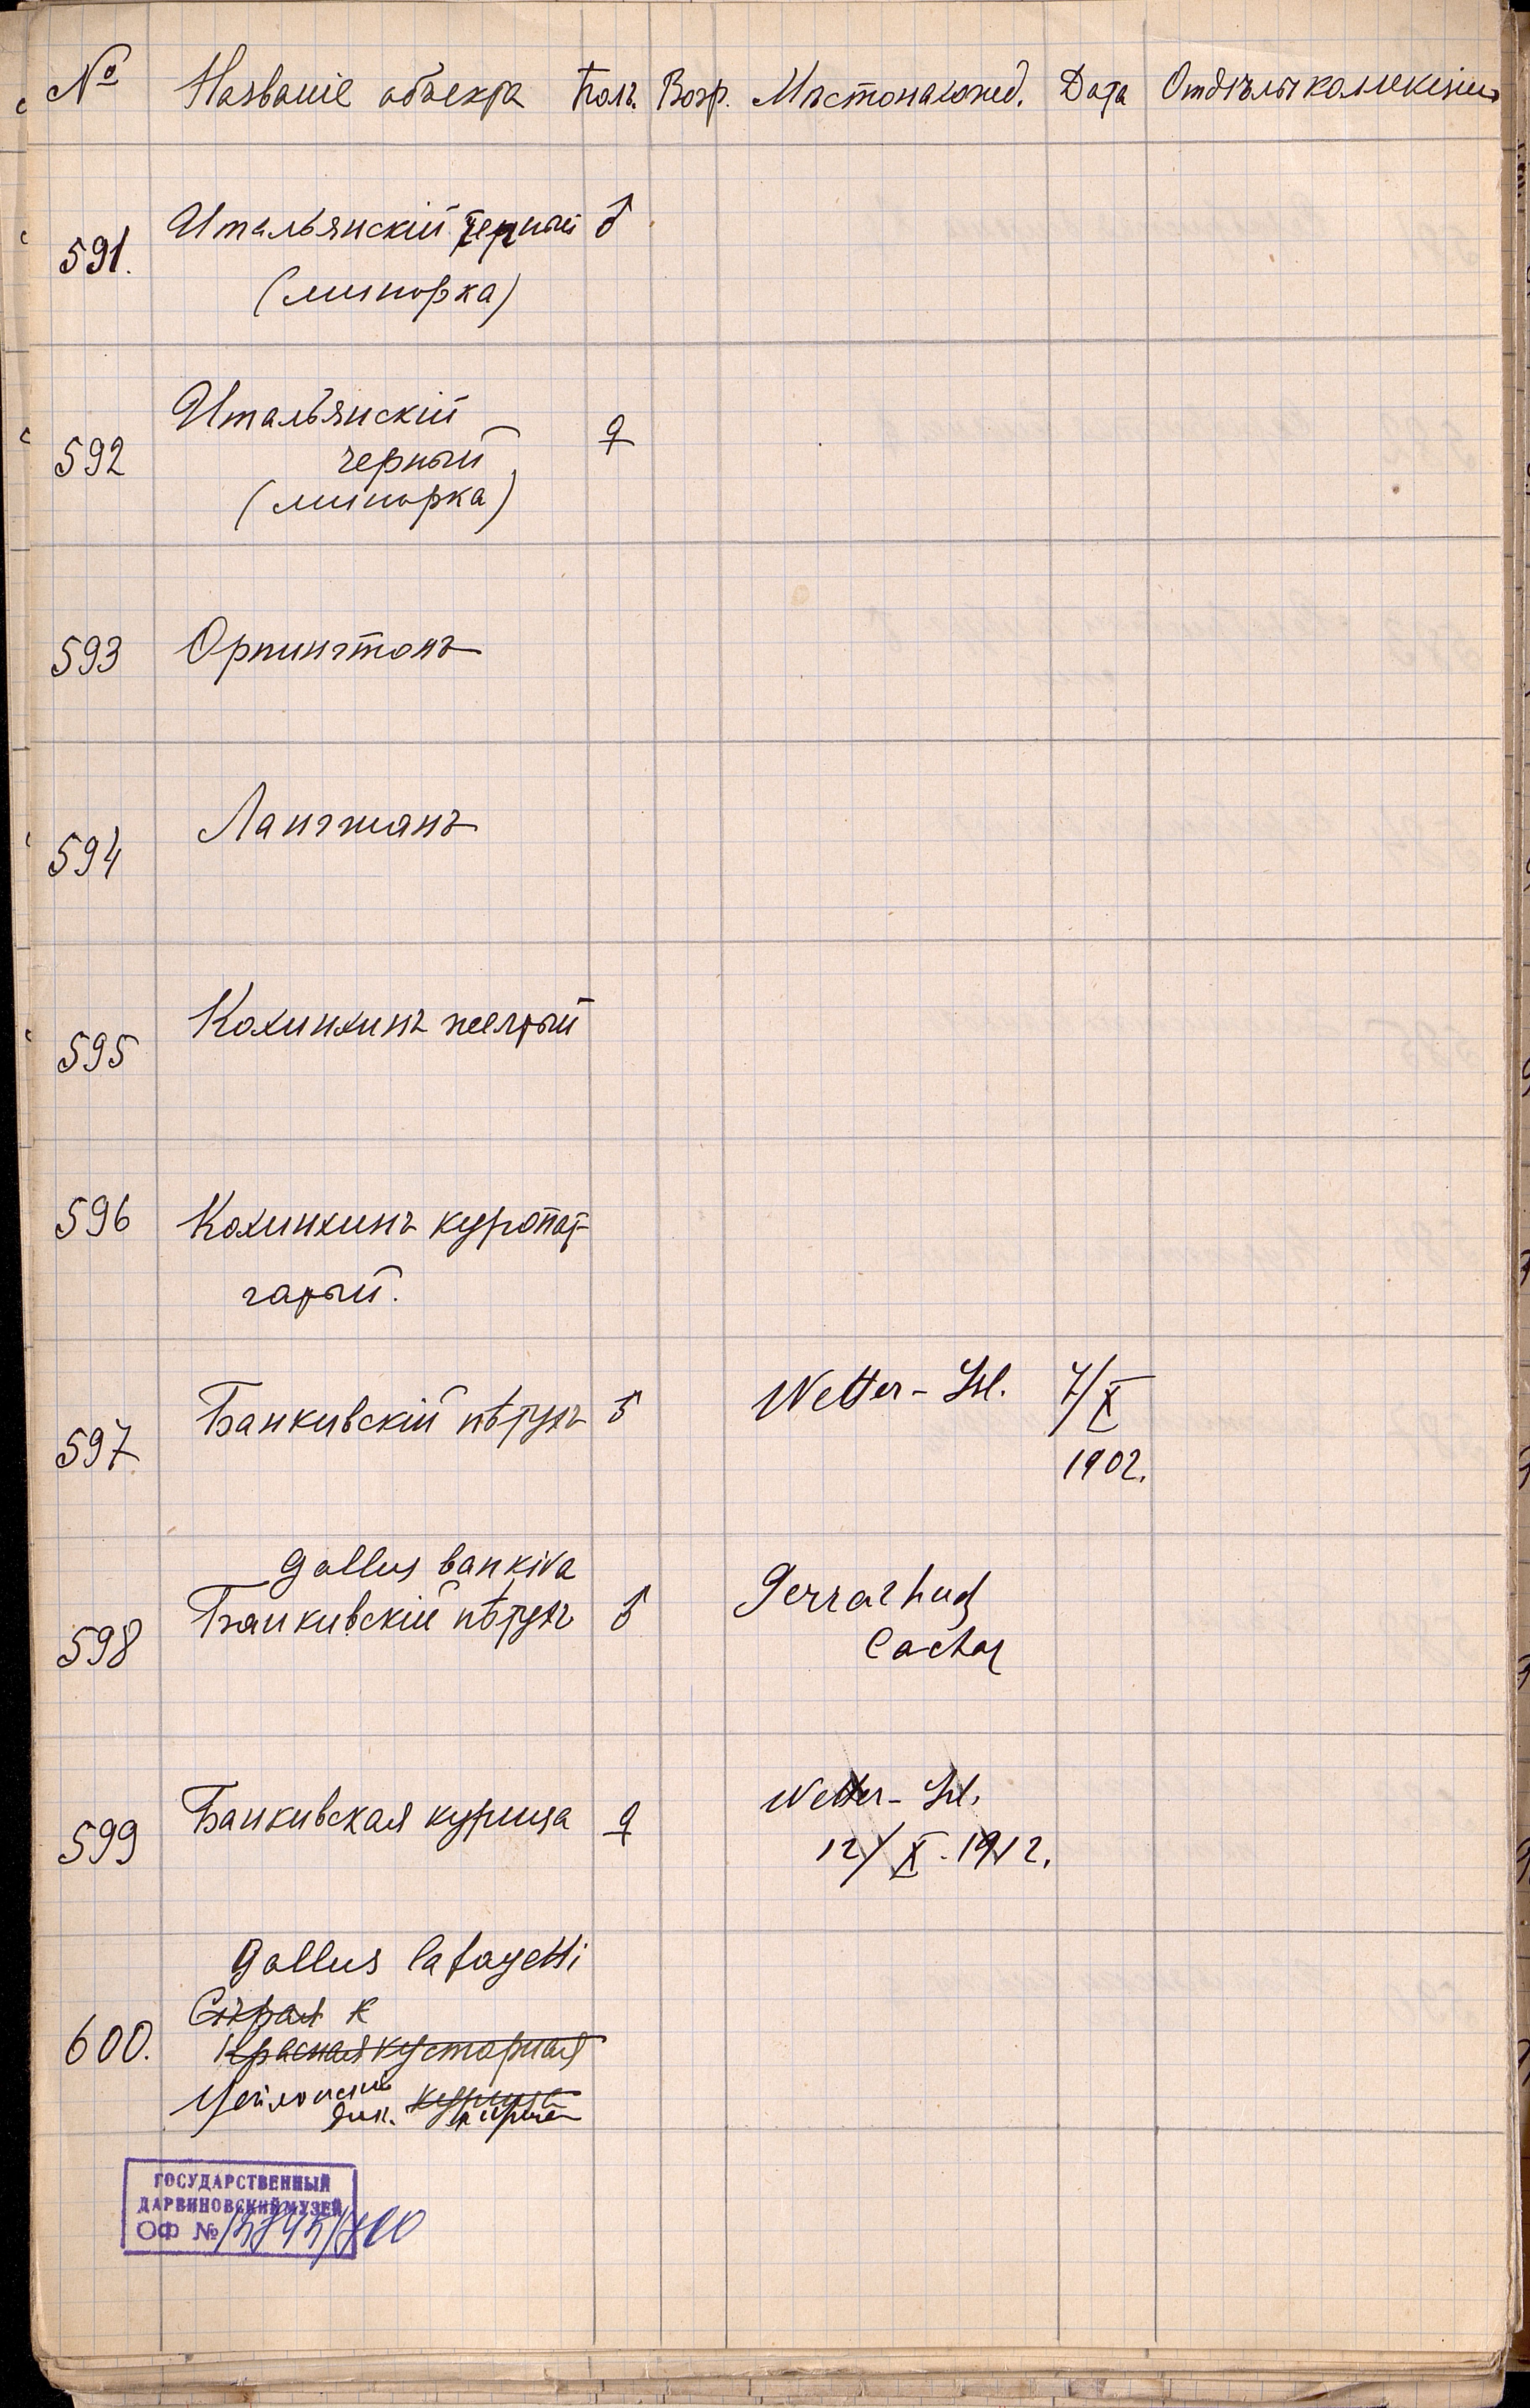 № Названіе объекта Полъ. Возр. Мѣстонахожд. Дата Отдѣлъ коллекціи
591. Итальянскій черный ♂
(минорка)
592 Итальянскій ♀
черный
(минорка)
593 Орпингтонъ
594 Лангшанъ
595 Кохинхинъ желтый
596 Кохинхинъ куропат-
чатый.
597 Банкивскій пѣтухъ ♂ Wetter-Isl. 7/X
1902.
Gallus bankiva
598 Банкивскій пѣтухъ ♂
Cachar
599 Банкивская курица ♀ Wetter-Isl.
12/X. 1912.
Gallus lafayetti
600. Сѣрая К
Красная кусторная
Цейлонская
дик. курица
ГОСУДАРСТВЕННЫЙ
ДАРВИНОВСКИЙ МУЗЕЙ
ОФ №